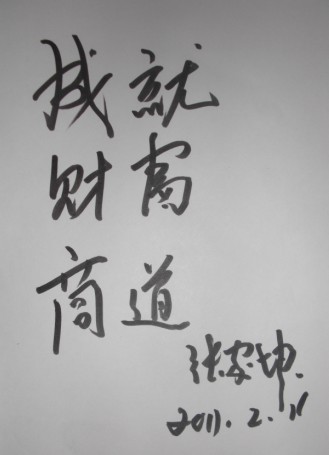 成就
财富
商道
张家坤
2011.2.11